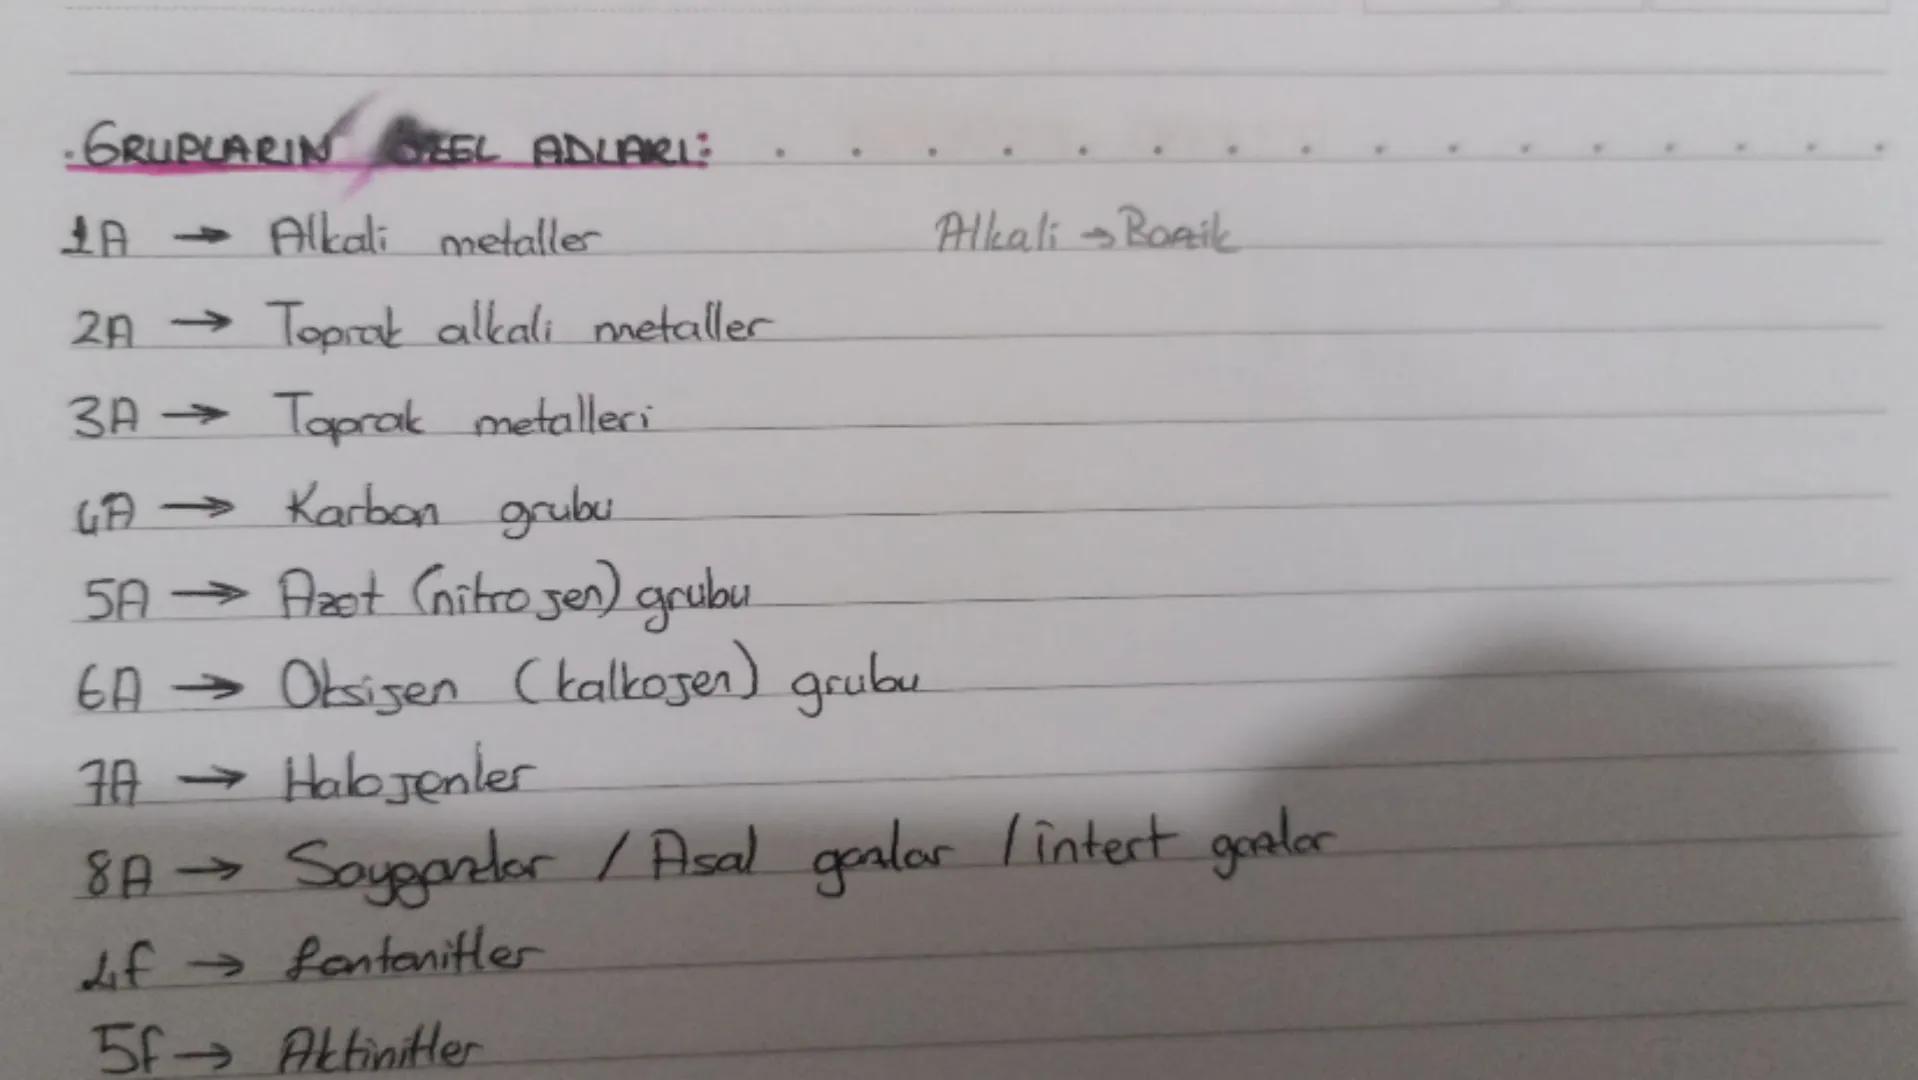 . GRUPLARIN ÖZEL ADLARI:
1A → Alkali metaller Alkali → Bazik
2A → Toprak alkali metaller
3A → Toprak metalleri
4A → Karbon grubu
5A → Azot (nitrojen) grubu
6A → Oksijen (kalkojen) grubu
7A → Halojenler
8A → Soygazlar / Asal gazlar / intert gazlar
4f → Lantanitler
5f → Aktinitler